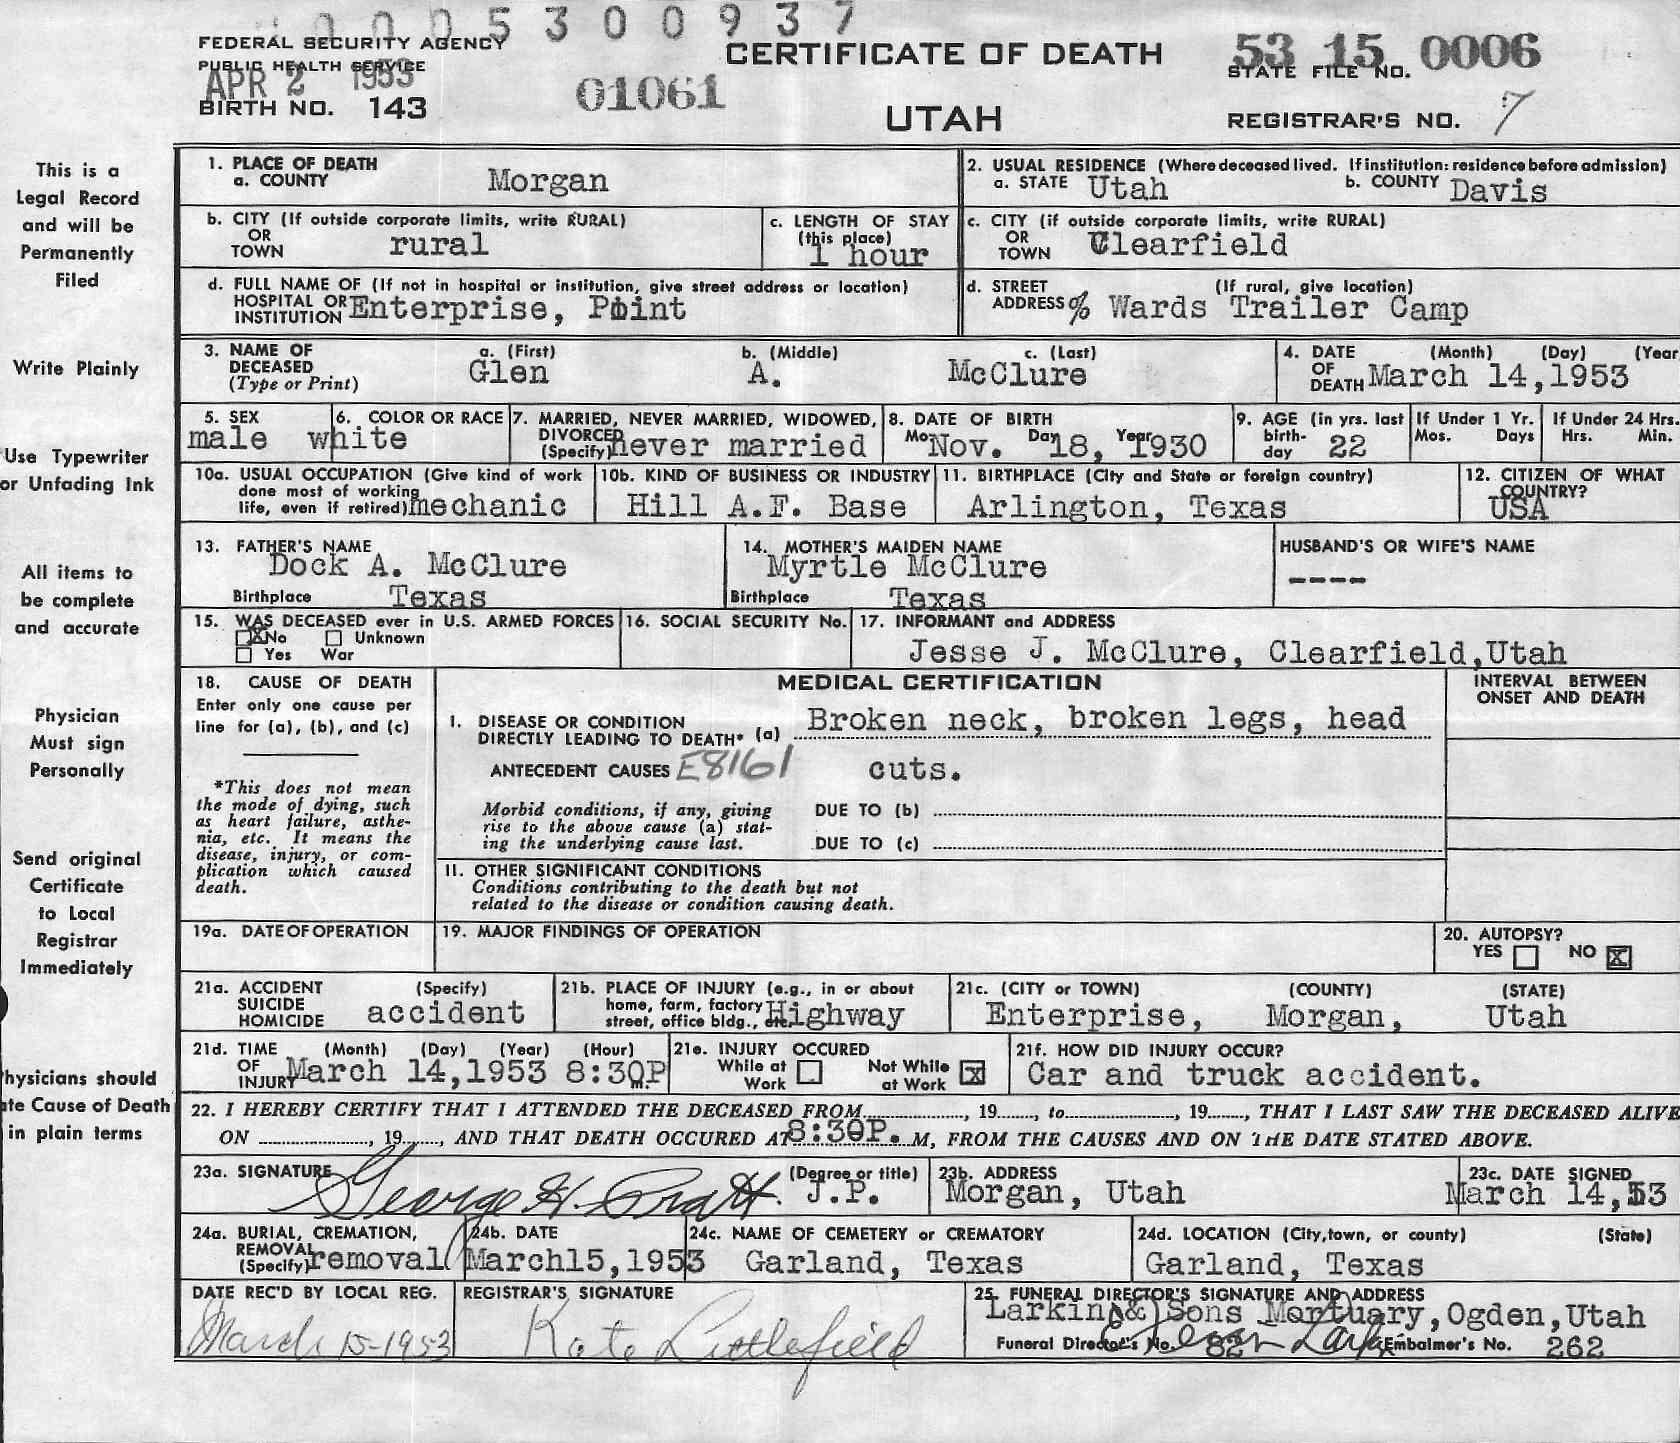 0005300937
FEDERAL SECURITY AGENCY
PUBLIC HEALTH SERVICE
APR 2 1953
BIRTH NO. 143
01061
CERTIFICATE OF DEATH
UTAH
53 15 0006
STATE FILE NO.
REGISTRAR'S NO. 7
This is a
Legal Record
and will be
Permanently
Filed
Write Plainly
Use Typewriter
or Unfading Ink
All items to
be complete
and accurate
Physician
Must sign
Personally
Send original
Certificate
to Local
Registrar
Immediately
hysicians should
ate Cause of Death
in plain terms
1. PLACE OF DEATH
a. COUNTY Morgan
2. USUAL RESIDENCE (Where deceased lived. If institution: residence before admission)
a. STATE Utah b. COUNTY Davis
b. CITY (If outside corporate limits, write RURAL)
OR
TOWN rural
c. LENGTH OF STAY
(this place)
1 hour
c. CITY (if outside corporate limits, write RURAL)
OR
TOWN Clearfield
d. FULL NAME OF (If not in hospital or institution, give street address or location)
HOSPITAL OR
INSTITUTION Enterprise, Point
d. STREET (If rural, give location)
ADDRESS % Wards Trailer Camp
3. NAME OF
DECEASED
(Type or Print)
a. (First) b. (Middle) c. (Last)
Glen A. McClure
4. DATE (Month) (Day) (Year
OF
DEATH March 14,1953
5. SEX
male
6. COLOR OR RACE
white
7. MARRIED, NEVER MARRIED, WIDOWED,
DIVORCED
(Specify) never married
8. DATE OF BIRTH
Mo Nov. Day 18, Year 1930
9. AGE (in yrs. last
birth-
day 22
If Under 1 Yr.
Mos. Days
If Under 24 Hrs.
Hrs. Min.
10a. USUAL OCCUPATION (Give kind of work
done most of working
life, even if retired) mechanic
10b. KIND OF BUSINESS OR INDUSTRY
Hill A.F. Base
11. BIRTHPLACE (City and State or foreign country)
Arlington, Texas
12. CITIZEN OF WHAT
COUNTRY?
USA
13. FATHER'S NAME
Dock A. McClure
Birthplace Texas
14. MOTHER'S MAIDEN NAME
Myrtle McClure
Birthplace Texas
HUSBAND'S OR WIFE'S NAME
----
15. WAS DECEASED ever in U.S. ARMED FORCES
X No Unknown
Yes War
16. SOCIAL SECURITY No.
17. INFORMANT and ADDRESS
Jesse J. McClure, Clearfield,Utah
18. CAUSE OF DEATH
Enter only one cause per
line for (a), (b), and (c)
*This does not mean
the mode of dying, such
as heart failure, asthe-
nia, etc. It means the
disease, injury, or com-
plication which caused
death.
MEDICAL CERTIFICATION
I. DISEASE OR CONDITION
DIRECTLY LEADING TO DEATH* (a) Broken neck, broken legs, head
ANTECEDENT CAUSES E8161 cuts.
Morbid conditions, if any, giving
rise to the above cause (a) stat-
ing the underlying cause last.
DUE TO (b)
DUE TO (c)
II. OTHER SIGNIFICANT CONDITIONS
Conditions contributing to the death but not
related to the disease or condition causing death.
INTERVAL BETWEEN
ONSET AND DEATH
19a. DATE OF OPERATION
19. MAJOR FINDINGS OF OPERATION
20. AUTOPSY?
YES NO X
21a. ACCIDENT (Specify)
SUICIDE
HOMICIDE accident
21b. PLACE OF INJURY (e.g., in or about
home, farm, factory
street, office bldg., etc. Highway
21c. (CITY or TOWN) (COUNTY) (STATE)
Enterprise, Morgan, Utah
21d. TIME (Month) (Day) (Year) (Hour)
OF
INJURY March 14,1953 8:30P m.
21e. INJURY OCCURED
While at
Work
Not While
at Work X
21f. HOW DID INJURY OCCUR?
Car and truck accident.
22. I HEREBY CERTIFY THAT I ATTENDED THE DECEASED FROM , 19 , to , 19 , THAT I LAST SAW THE DECEASED ALIVE
ON , 19 , AND THAT DEATH OCCURED AT 8:30P. M, FROM THE CAUSES AND ON THE DATE STATED ABOVE.
23a. SIGNATURE George H. Pratt (Degree or title) J.P.
23b. ADDRESS
Morgan, Utah
23c. DATE SIGNED
March 14,53
24a. BURIAL, CREMATION,
REMOVAL
(Specify) removal
24b. DATE
March15,1953
24c. NAME OF CEMETERY OR CREMATORY
Garland, Texas
24d. LOCATION (City,town, or county) (State)
Garland, Texas
DATE REC'D BY LOCAL REG.
March 15-1953
REGISTRAR'S SIGNATURE
Kate Littlefield
25. FUNERAL DIRECTOR'S SIGNATURE AND ADDRESS
Larkin & Sons Mortuary,Ogden,Utah
Funeral Director's No. 82 Embalmer's No. 262